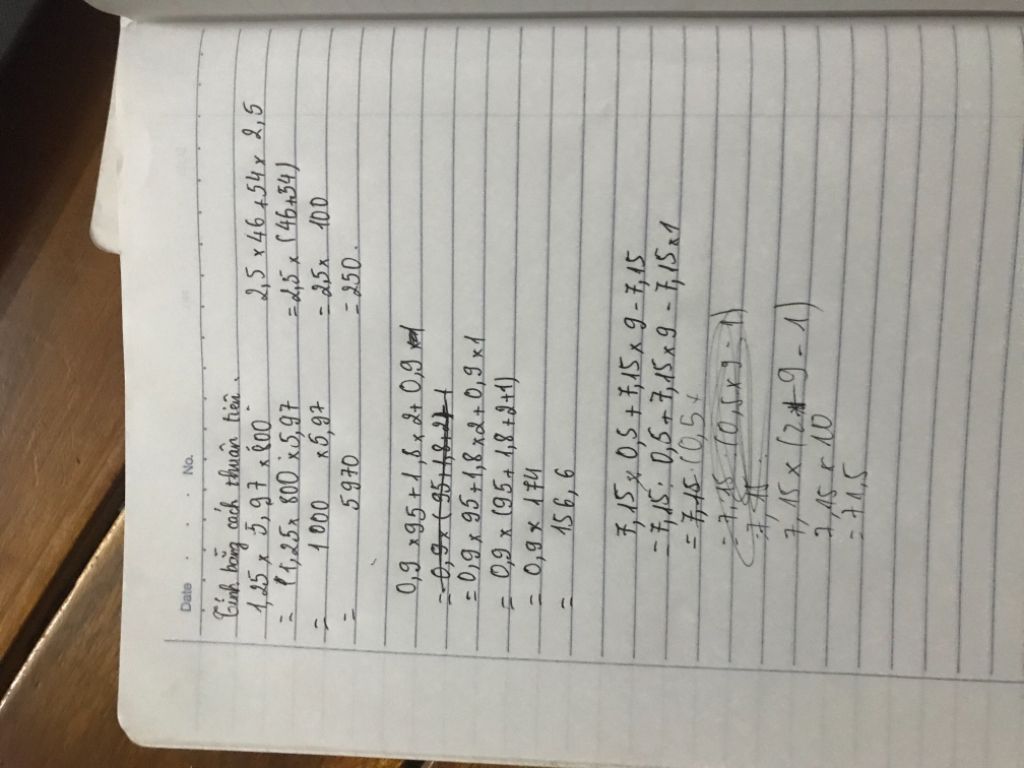 Date . . No.
Tính bằng cách thuận tiện.
1,25 x 5,97 x 800
= (1,25 x 800) x 5,97
= 1000 x 5,97
= 5970
2,5 x 46 + 54 x 2,5
= 2,5 x (46+54)
= 2,5 x 100
= 250.
0,9 x 95 + 1,8 x 2 + 0,9
= 0,9 x (95+1,8+2)+1
= 0,9 x 95 + 1,8 x 2 + 0,9 x 1
= 0,9 x (95 + 1,8 + 2 + 1)
= 0,9 x 174
= 156,6
7,15 x 0,5 + 7,15 x 9 - 7,15
= 7,15 . 0,5 + 7,15 x 9 - 7,15 x 1
= 7,15 . (0,5 x
= 7,15 (0,5 x 9 - 1)
7,15 x (2 + 9 - 1)
7,15 x 10
= 71,5